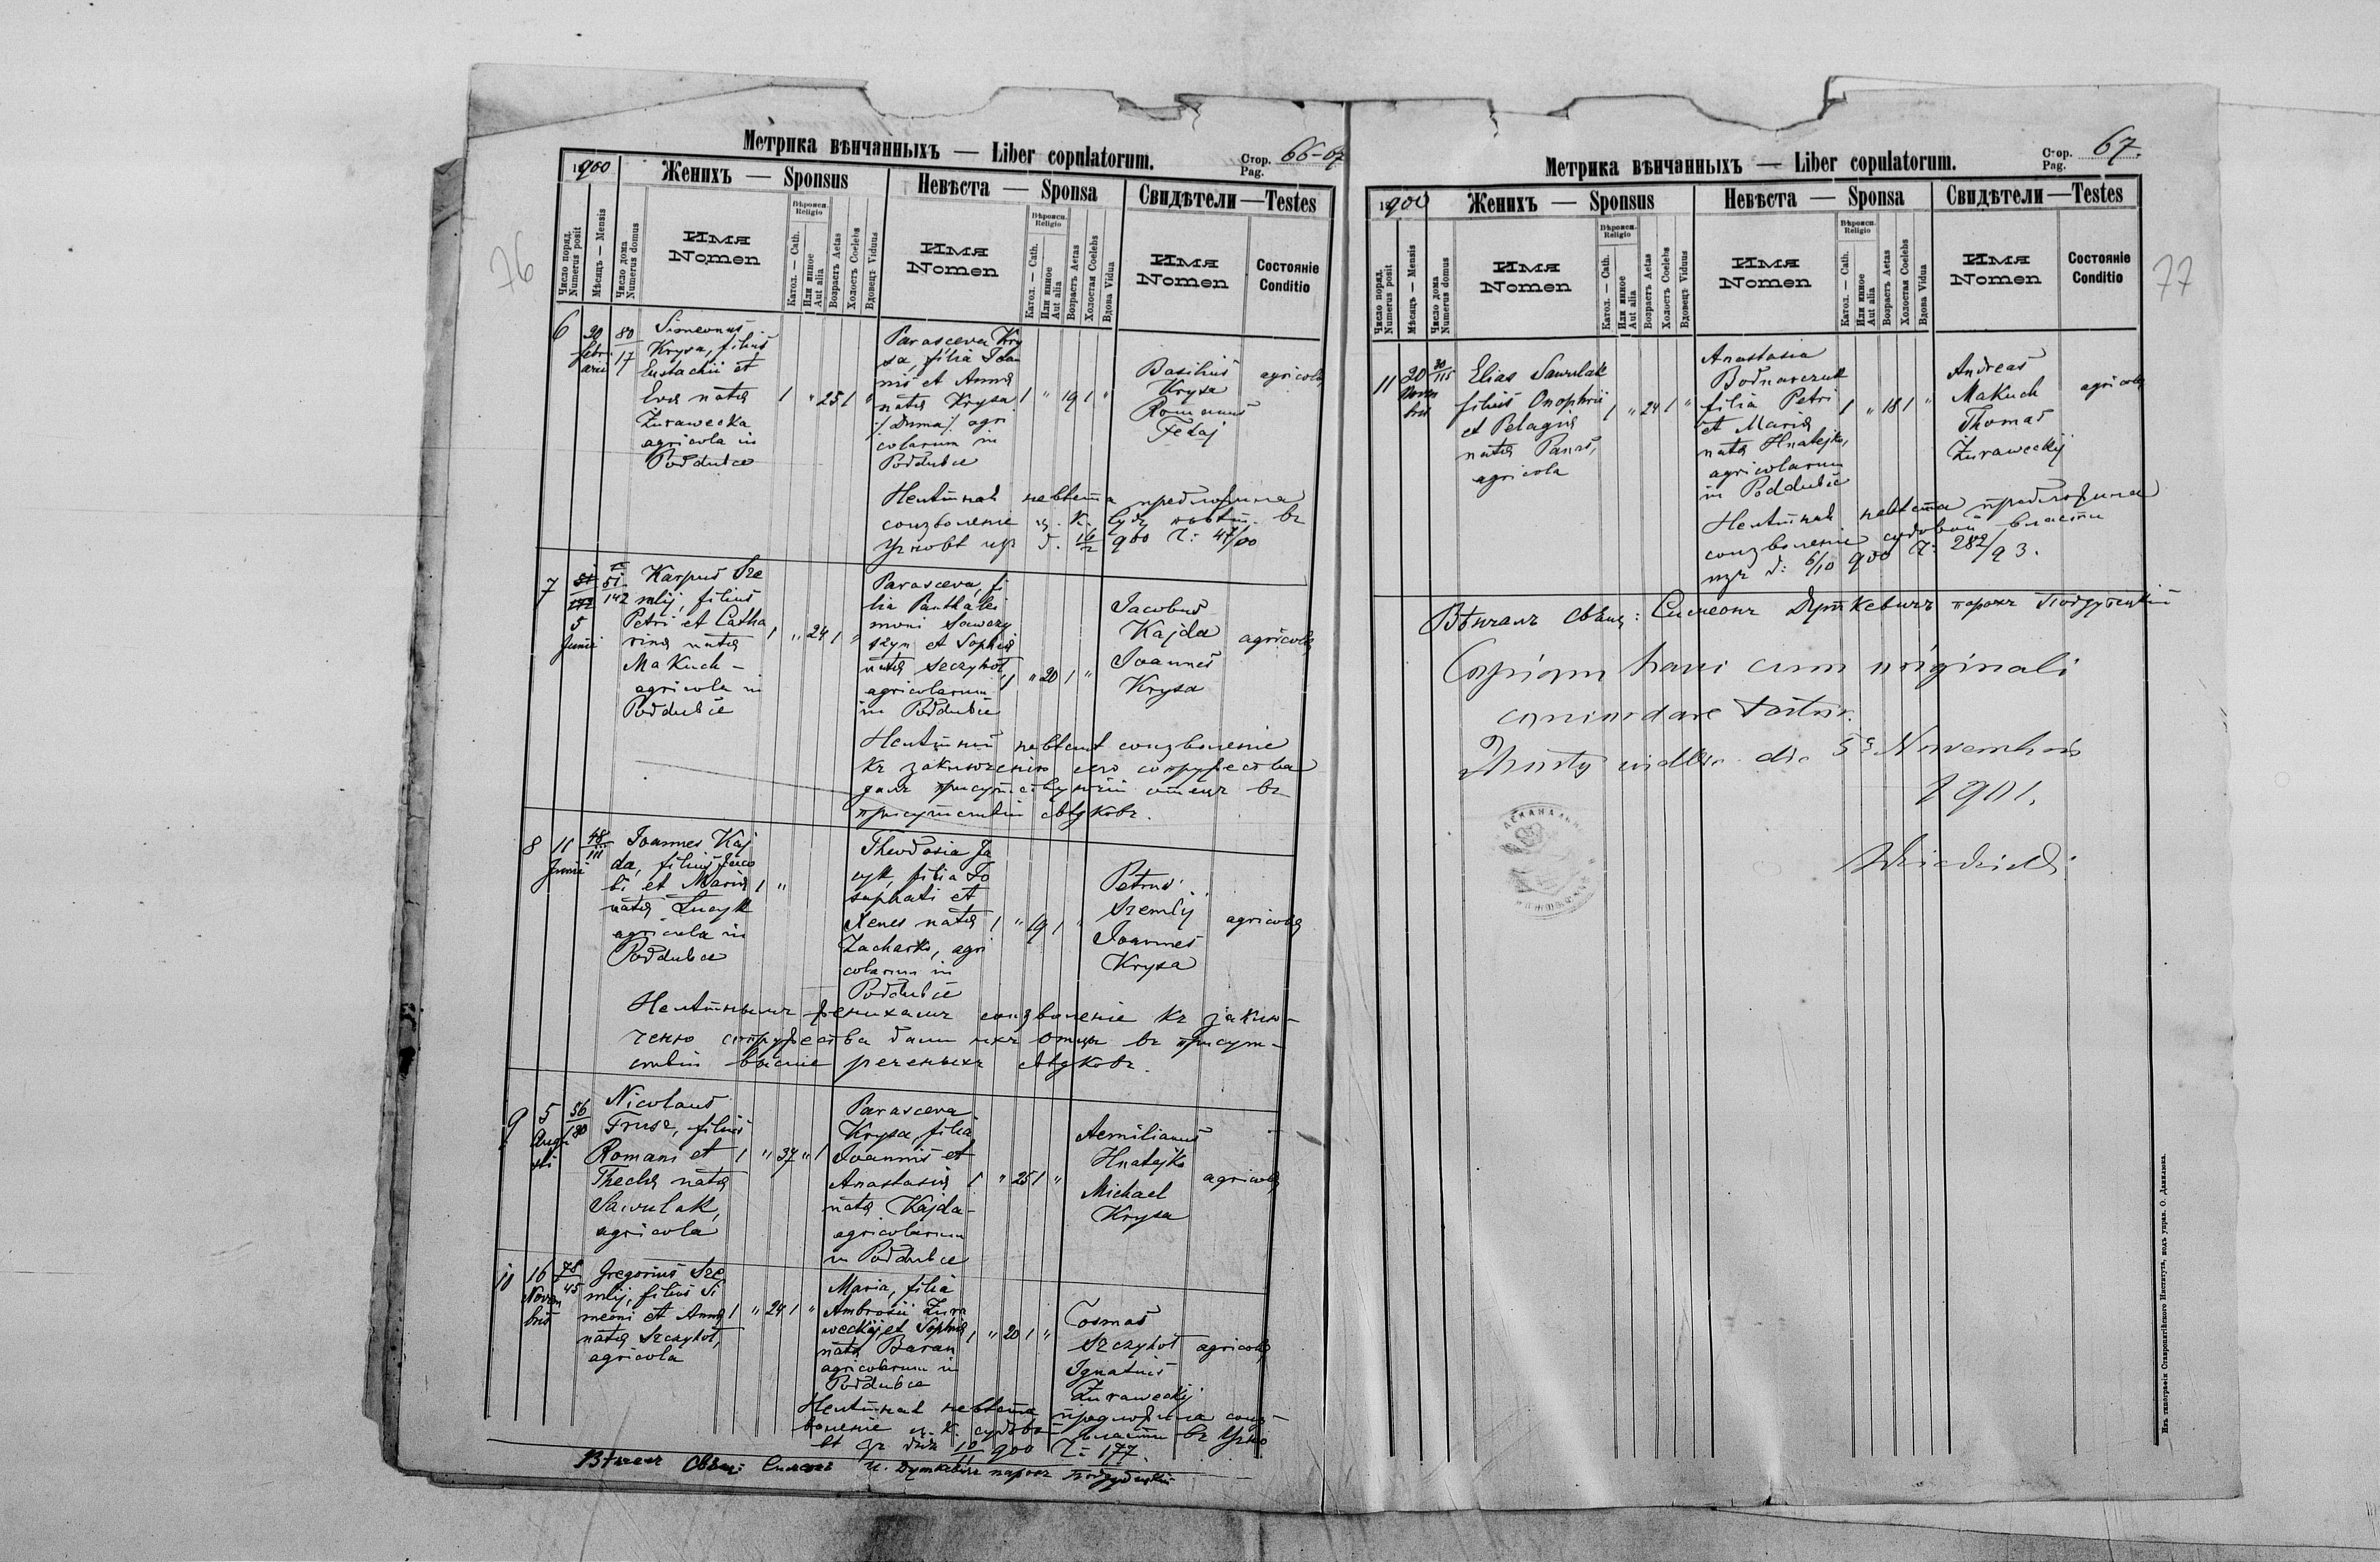 Метрика вѣнчанныхъ — Liber copulatorum.
Стор. Pag. 66-67
1900
Женихъ — Sponsus
Невѣста — Sponsa
Свидѣтели — Testes
Число поряд. Numerus posit
Мѣсяцъ — Mensis
Число дома Numerus domus
Имя Nomen
Вѣроисп. Religio
Катол. — Cath.
Или инное Aut alia
Возрастъ Aetas
Холостъ Coelebs
Вдовецъ Viduus
Имя Nomen
Вѣроисп. Religio
Катол. — Cath.
Или инное Aut alia
Возрастъ Aetas
Холостая Coelebs
Вдова Vidua
Имя Nomen
Состояніе Conditio
76
6
20 Febru arii
80 17
Simeonus
Krysa, filius
Eustachii et
Eva nata
Żurawecka
agricola in
Poddubce
1 " 25 1 "
Parasceva Kry
sa, filia Ioan
nis et Anna
nata Krysa
/Duma/ agri
colarum in
Poddubce
1 " 19 1 "
Basilius
Krysa
Romanus
Fedaj
agricola
Нелѣтная невѣста предложила
соизволеніе ц. к. Суду повѣт. въ
Угновѣ изъ д. 16/2 900 Ч: 47/00
7
5 Junii
51 142
Karpus Sze
mlij, filius
Petri et Catha
rina nata
Makuch -
agricola in
Poddubce
1 " 24 1 "
Parasceva, fi
lia Panthalei
moni Sawczy
szyn et Sophia
nata Szczyhoł,
agricolarum
in Poddubce
1 " 20 1 "
Jacobus
Kajda
Joannes
Krysa
agricola
къ заключенію его сопружества
присутствіи свѣдковъ.
8
11 Junii
48 111
Joannes Kaj
da, filius Jaco
bi et Maria
nata Łucyk
agricola in
Poddubce
1 "
Theodosia Ja
cyk, filia Jo
saphati et
Xenes nata
Zacharko, agri
colarum in
Poddubce
1 " 19 1 "
Petrus
Szemlij
Joannes
Krysa
agricola
Нелѣтнымъ женихамъ соизволеніе къ заклю-
ченю сопружества дали ихъ отцы въ присут-
ствіи высше реченыхъ свѣдковъ.
9
5 Augu sti
56 180
Nicolaus
Trusz, filius
Romani et
Thecla nata
Sawulak,
agricola
1 " 37 " 1
Parasceva
Krysa, filia
Joannis et
Anastasia
nata Kajda -
agricolarum
in Poddubce
1 " 25 1 "
Aemilianus
Hnatejko
Michael
Krysa
agricola
10
16 Novem bris
78 45
Gregorius Sze
mlij, filius Si
meoni et Anna
nata Szczyhoł,
agricola
1 " 24 1 "
Maria, filia
Ambrosii Żura
weckij et Sophia
nata Baran
agricolarum in
Poddubce
1 " 20 1 "
Cosmas
Szczyhoł
Ignatius
Żuraweckij
agricola
Нелѣтная невѣста предложила соиз-
воленіе ц. к. судовой власти въ Угно
900 Ч: 177.
Вѣнчалъ Свящ: Симеонъ И. Дуткевичъ парохъ Поддубецкій
Метрика вѣнчанныхъ — Liber copulatorum.
Стор. Pag. 67.
1900
Женихъ — Sponsus
Невѣста — Sponsa
Свидѣтели — Testes
Число поряд. Numerus posit
Мѣсяцъ — Mensis
Число дома Numerus domus
Имя Nomen
Вѣроисп. Religio
Катол. — Cath.
Или инное Aut alia
Возрастъ Aetas
Холостъ Coelebs
Вдовецъ Viduus
Имя Nomen
Вѣроисп. Religio
Катол. — Cath.
Или инное Aut alia
Возрастъ Aetas
Холостая Coelebs
Вдова Vidua
Имя Nomen
Состояніе Conditio
77
11
20 Novem bris
30 115
Elias Sawulak
filius Onophrii
et Pelagia
nata Panas,
agricola
1 " 24 1 "
Anastasia
Bodnarczuk
filia Petri
et Maria
nata Hnatejko,
agricolarum
in Poddubce
1 " 18 1 "
Andreas
Makuch
Thomas
Żuraweckij
agricola
Нелѣтная невѣста предложила
соизволеніе судовой власти
изъ д: 6/10 900 Ч: 282/93.
Вѣнчалъ свящ: Симеонъ Дуткевичъ парохъ Поддубецкій
Copiam hanc cum originali
concordare testor.
die 5 Novembris
1901.
Изъ типографіи Ставропигійского Института, подъ управ. О. Данилюка.